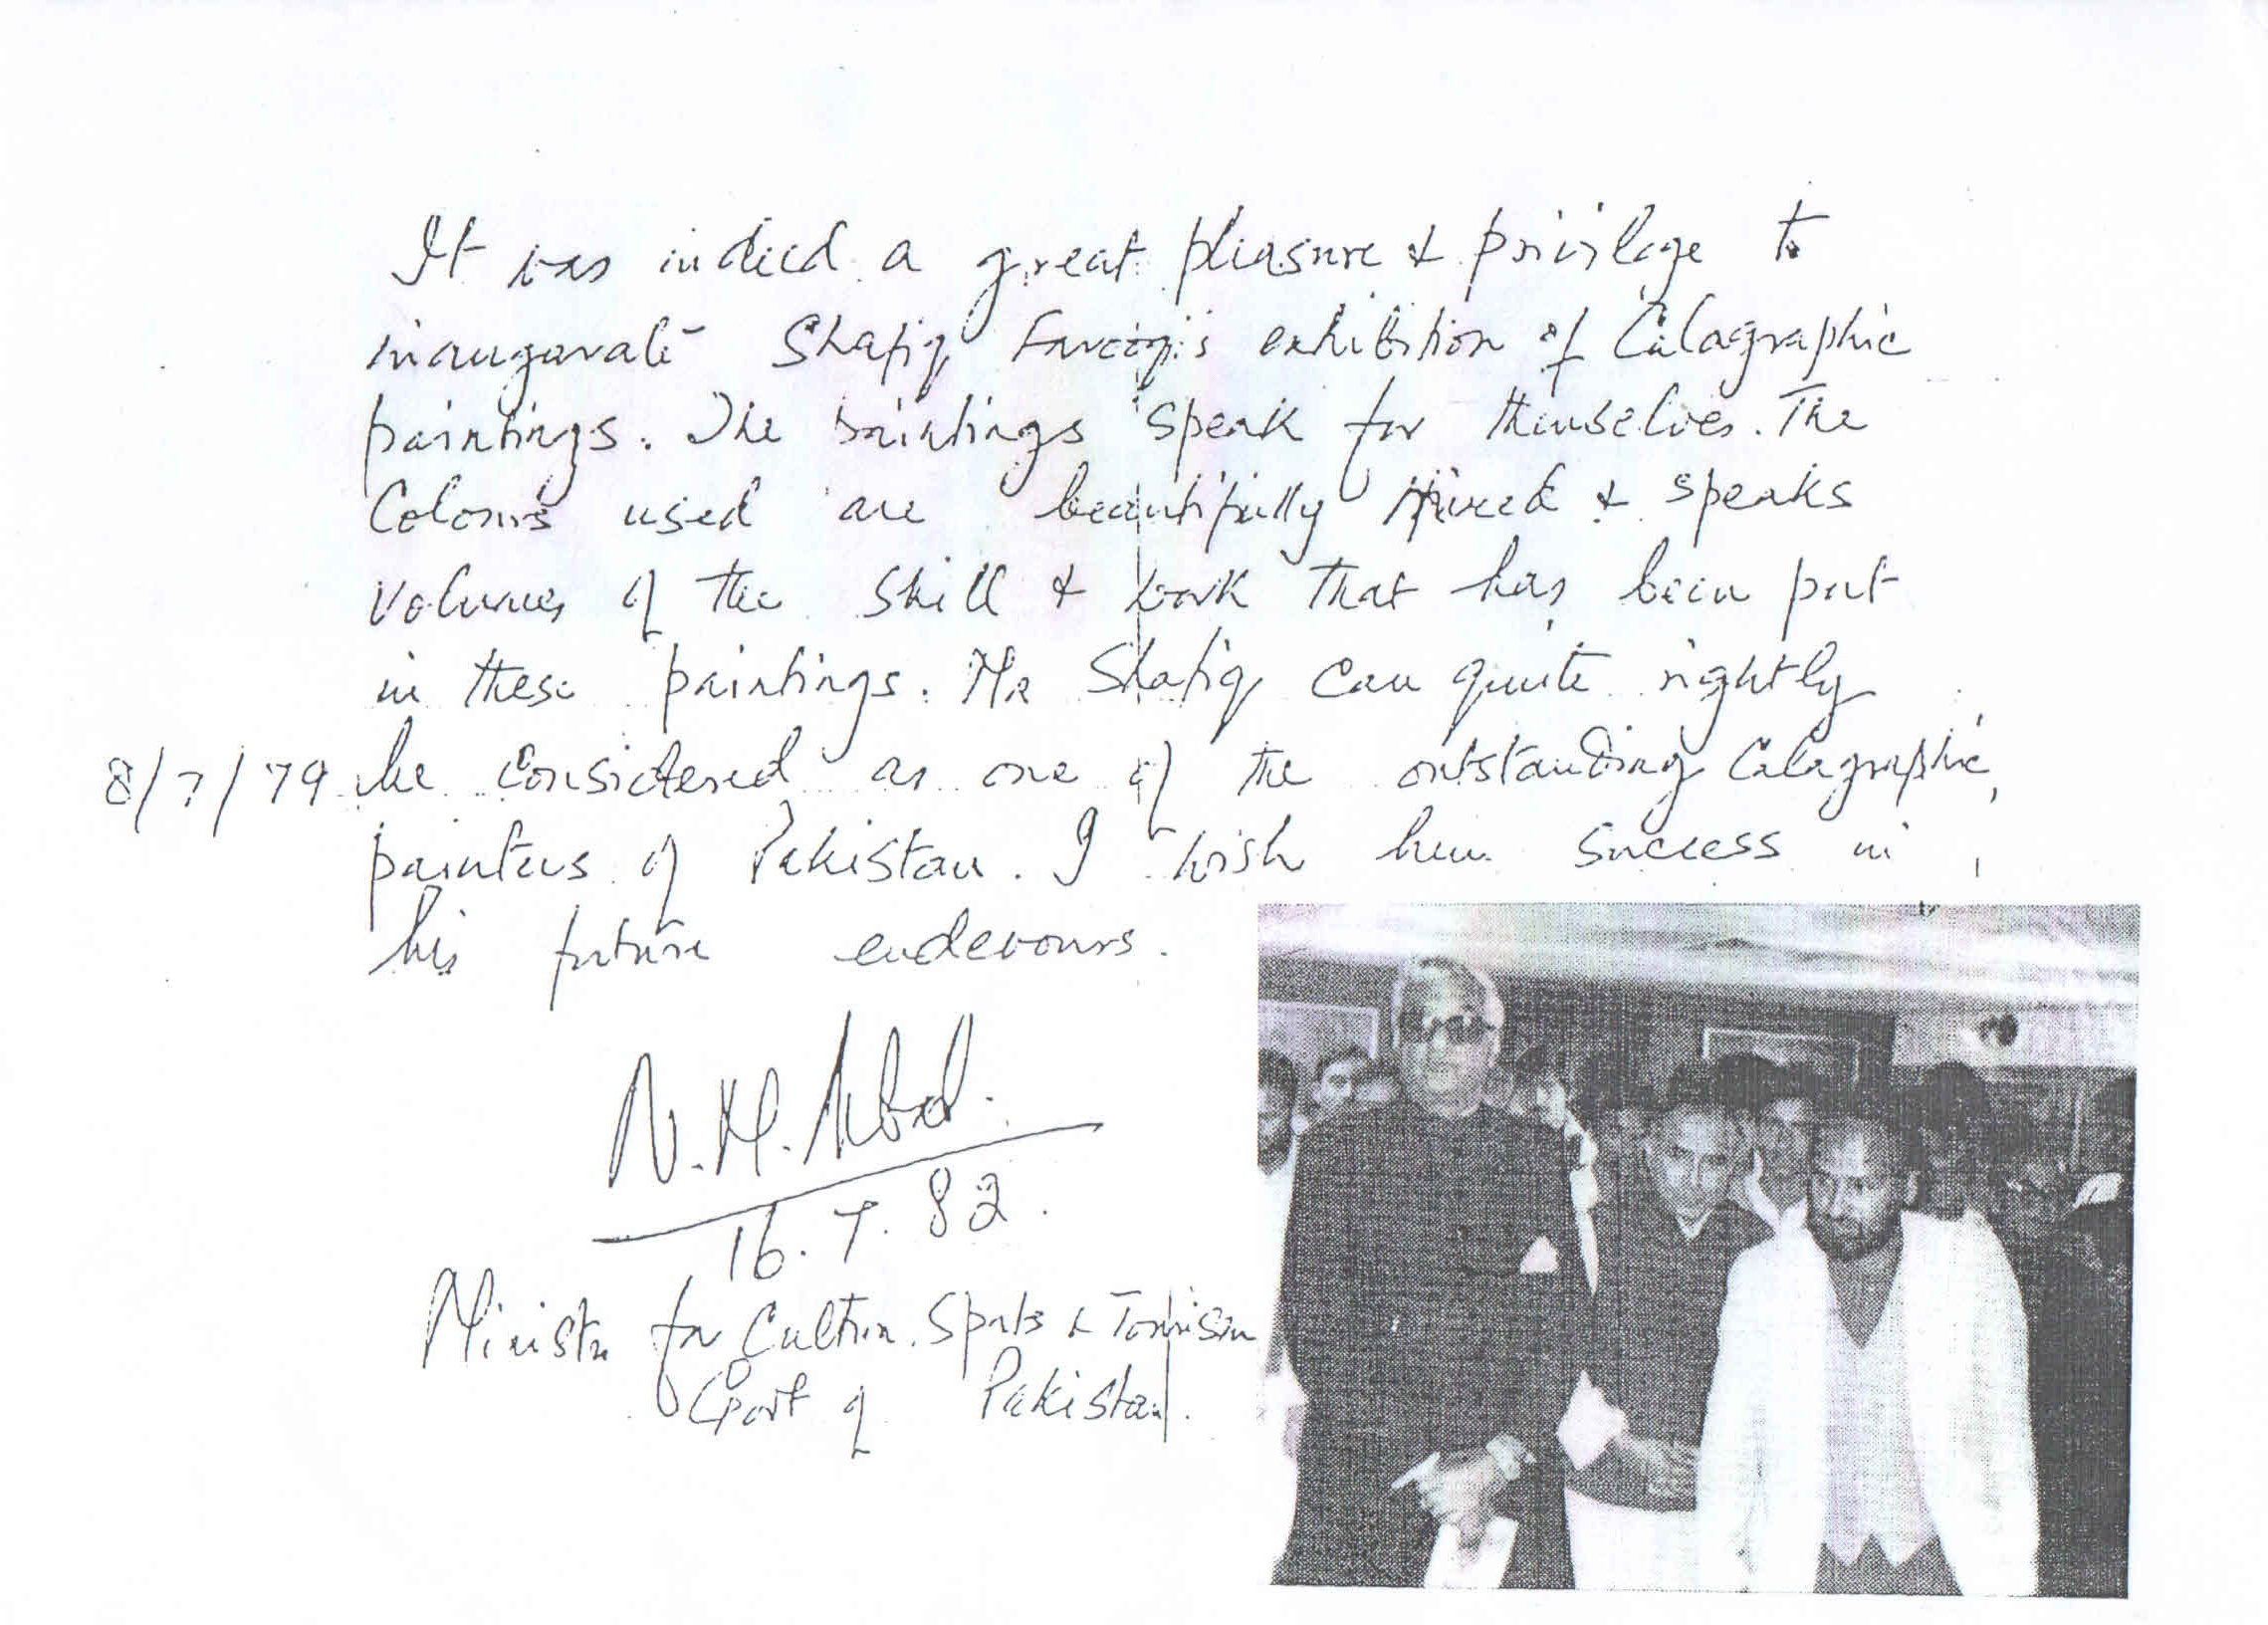 It was indeed a great pleasure & privilage to
inaugarate Shafiq Farooqi's exhibition of Calagraphic
paintings. The paintings speak for themselves. The
Colours used are beautifully Mixed & speaks
Volumes of the skill & work that has been put
in these paintings. Mr Shafiq can quite rightly
8/7/79 be considered as one of the outstanding Calagraphic
painters of Pakistan. I wish him success in
his future endevours.
N.M.
16.7.82.
Minister for Culture, Sports & Tourism
Govt of Pakistan.